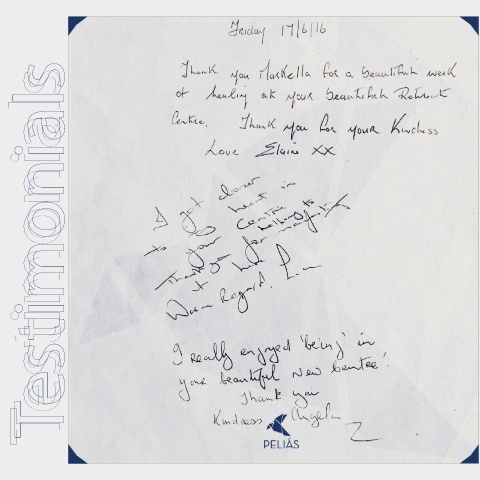 Testimonials
Friday 17/6/16
Thank you Markella for a beautiful week
of healing at your beautiful Retreat
Centre. Thank you for your Kindness
Love Elaine XX
I got closer
to my heart in
your Centre
Thank you for helping to
it
Warm Regard.
I really enjoyed 'being' in
your beautiful new centre!
Thank you
Kindness Angela
PELIÁS